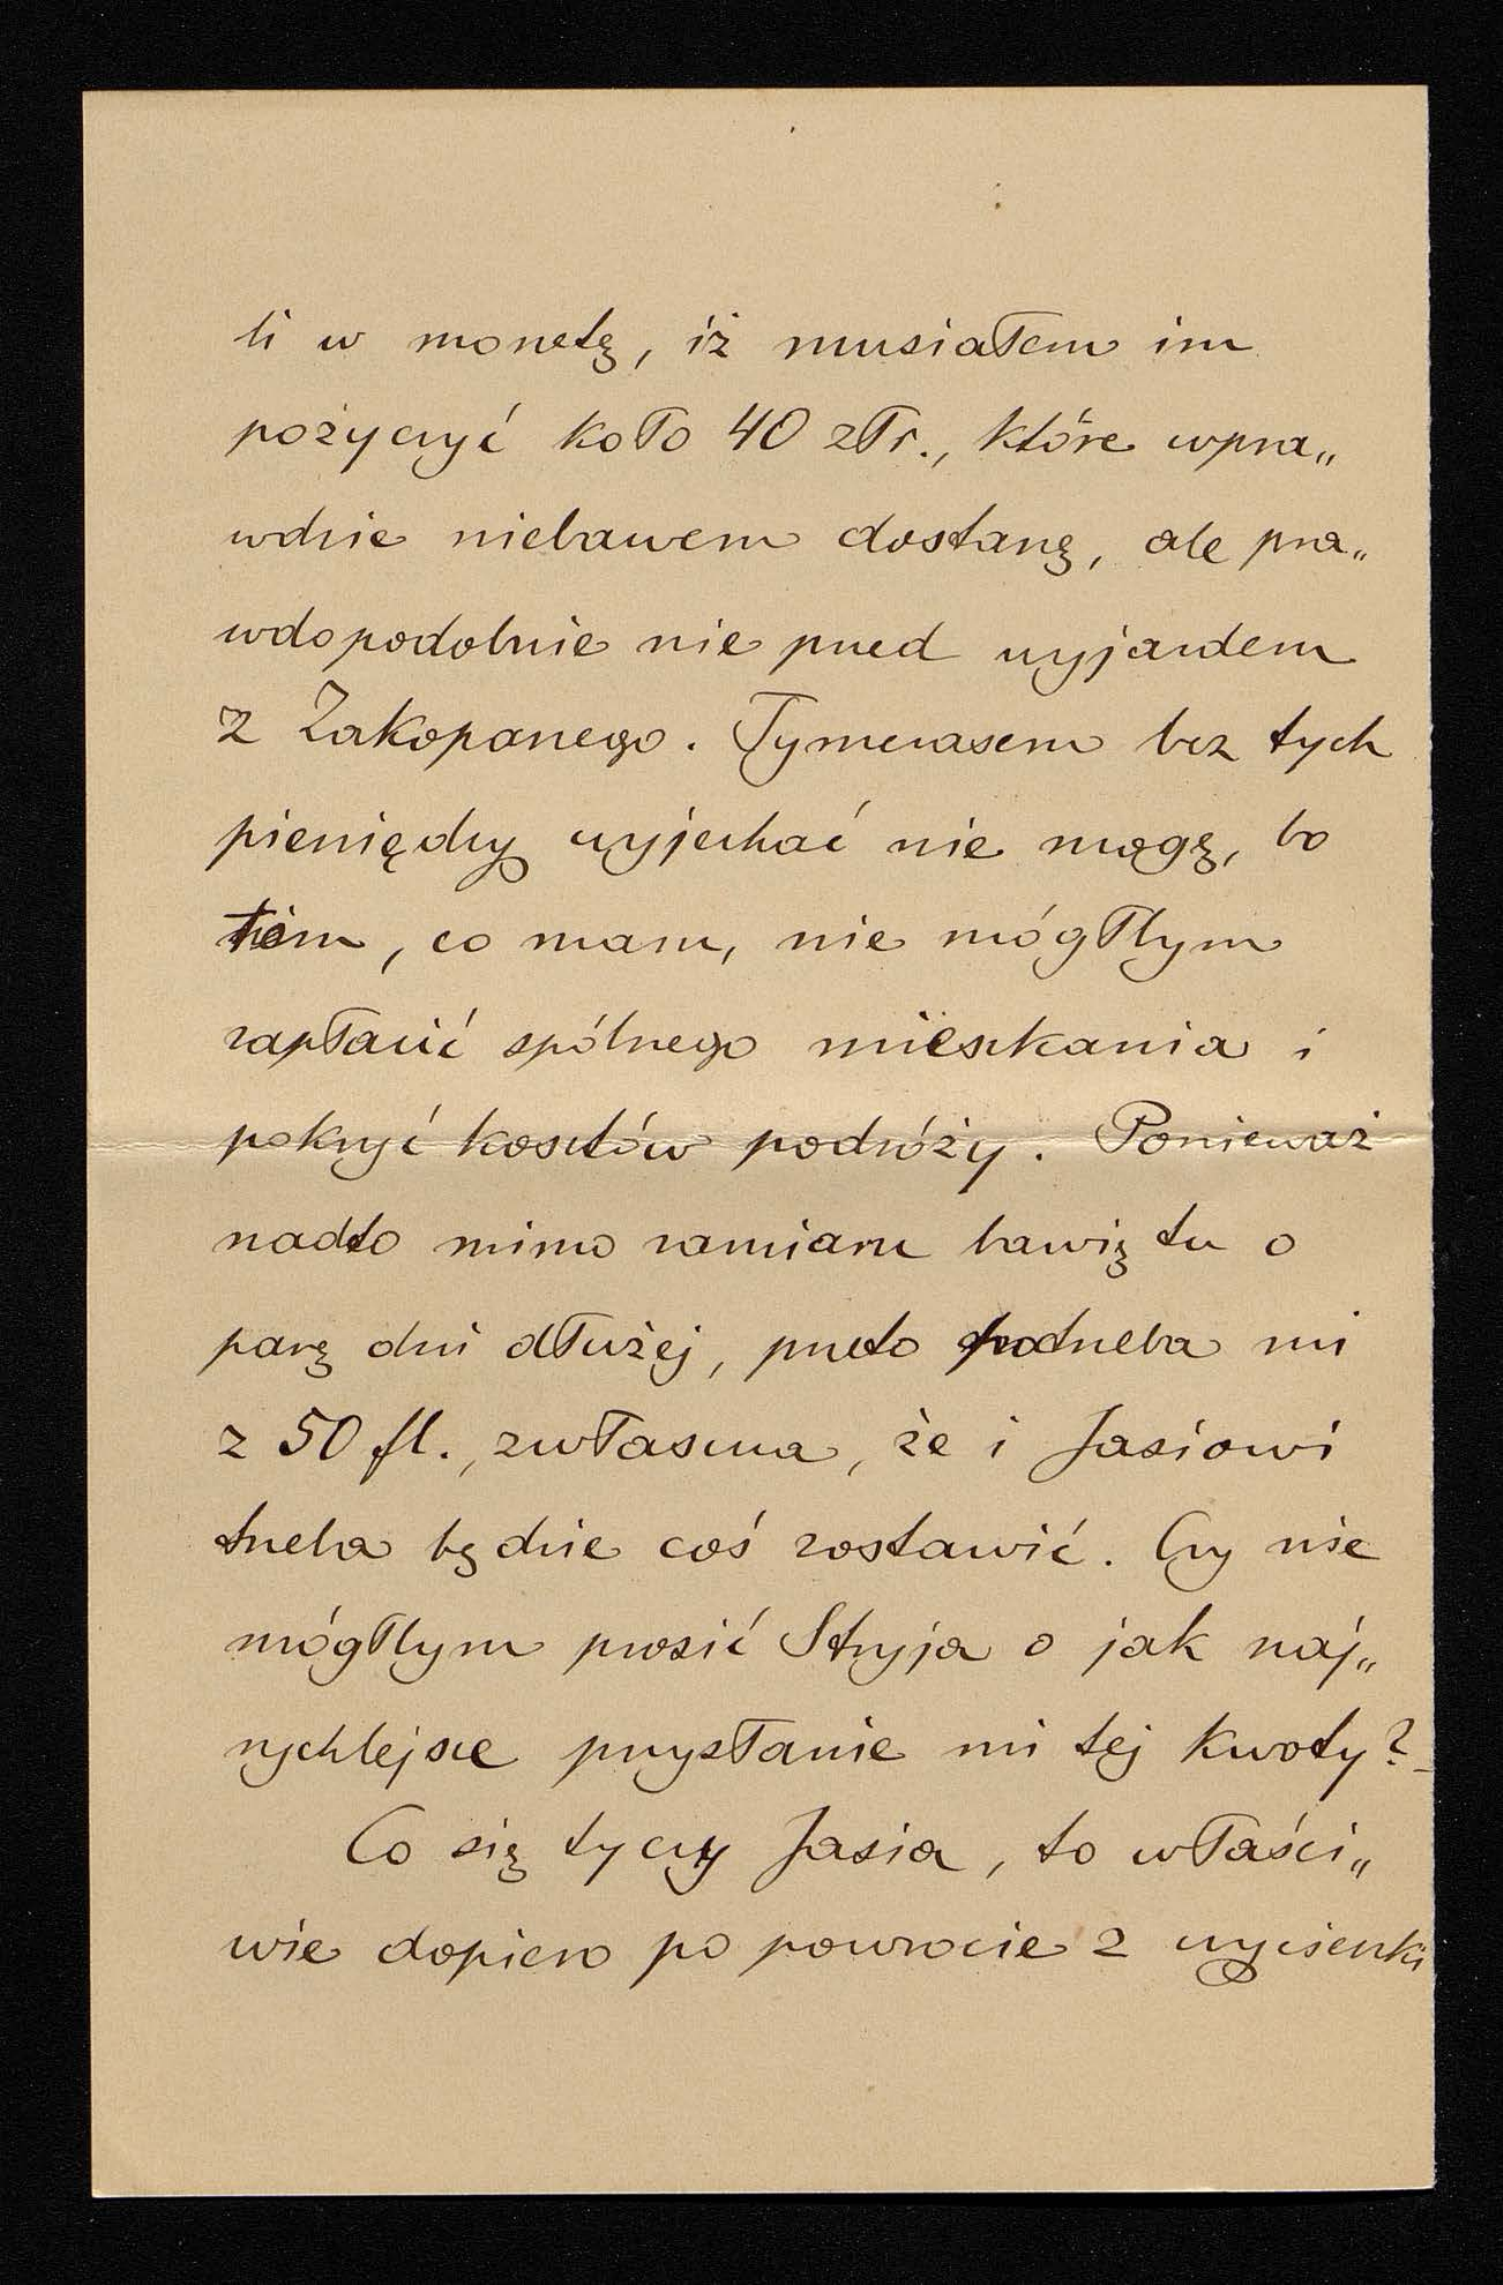 li w monetę, iż musiałem im
pożyczyć koło 40 złr., które wpra„
wdzie niebawem dostanę, ale pra„
wdopodobnie nie przed wyjazdem
z Zakopanego. Tymczasem bez tych
pieniędzy wyjechać nie mogę, bo
tém, co mam, nie mógłbym
zapłacić spólnego mieszkania i
pokryć kosztów podróży. Ponieważ
nadto mimo zamiaru bawię tu o
parę dni dłużej, przeto potrzeba mi
z 50 fl., zwłaszcza, że i Jasiowi
trzeba będzie coś zostawić. Czy nie
mógłbym prosić Stryja o jak naj„
rychlejsze przysłanie mi tej kwoty? –
Co się tyczy Jasia, to właści„
wie dopiero po powrocie z wycieczki